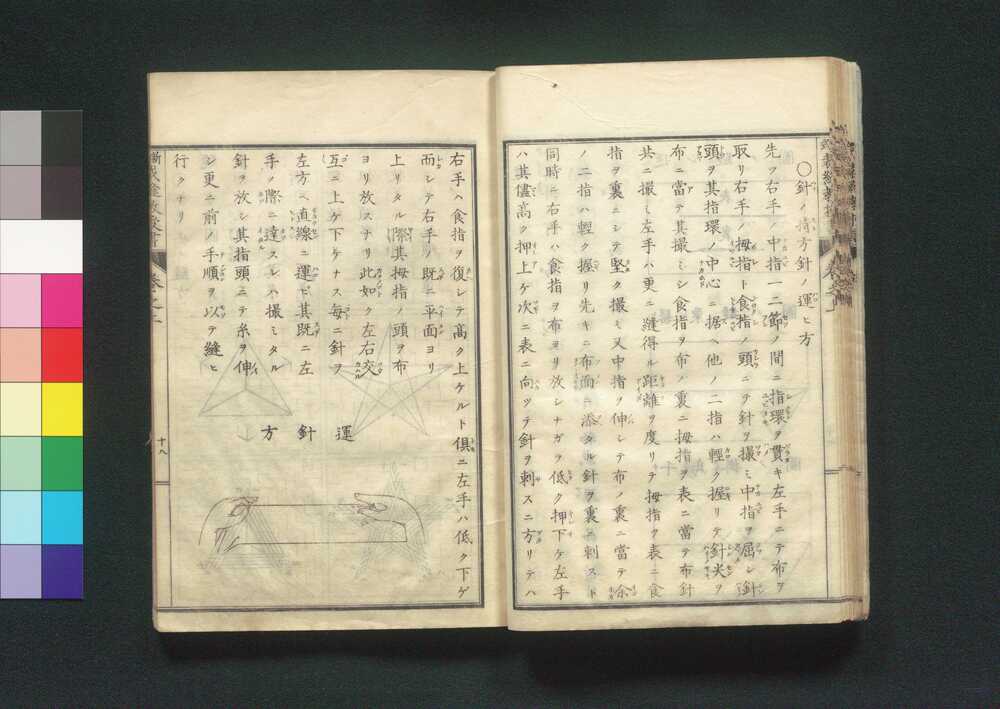 〇針ノ持方針ノ運ヒ方
先ツ右手ノ中指一二節ノ間ニ指環ヲ貫キ左手ニテ布ヲ
取リ右手ノ拇指ト食指ノ頭ニテ針ヲ撮ミ中指ヲ屈シ針
頭ヲ其指環ノ中心ニ据ヘ他ノ二指ハ輕ク握リテ針尖ヲ
布ニ當テ其撮ミシ食指ヲ布ノ裏ニ拇指ヲ表ニ當テ布針
共ニ撮ミ左手ハ更ニ縫得ル距離ヲ度リテ拇指ヲ表ニ食
指ヲ裏ニシテ堅ク撮ミ又中指ヲ伸シテ布ノ裏ニ當テ余
ノ二指ハ輕ク握リ先キニ布面ニ添タル針ヲ裏ニ刺スト
同時ニ右手ハ食指ヲ布ヨリ放シナガラ低ク押下ケ左手
ハ其儘高ク押上ケ次ニ表ニ向ツテ針ヲ刺スニ方リテハ
右手ハ食指ヲ復シテ高ク上ケルト倶ニ左手ハ低ク下ゲ
而シテ右手ノ既ニ平面ヨリ
上リタル際其拇指ノ頭ヲ布
ヨリ放スナリ此如ク左右交
互ニ上ケ下ケナス毎ニ針ヲ
左方ヘ直線ニ運ビ其既ニ左
手ノ際ニ達スレハ撮ミタル
針ヲ放シ其指頭ニテ糸ヲ伸
シ更ニ前ノ手順ヲ以テ縫ヒ
行クナリ
運針方
十八